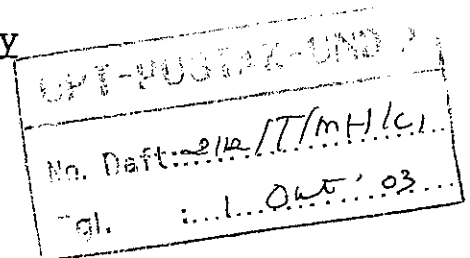 y
UPT-PUSTAK-UND
No. Daft: /T/MH/C1
Tgl. : 1 Okt' 03